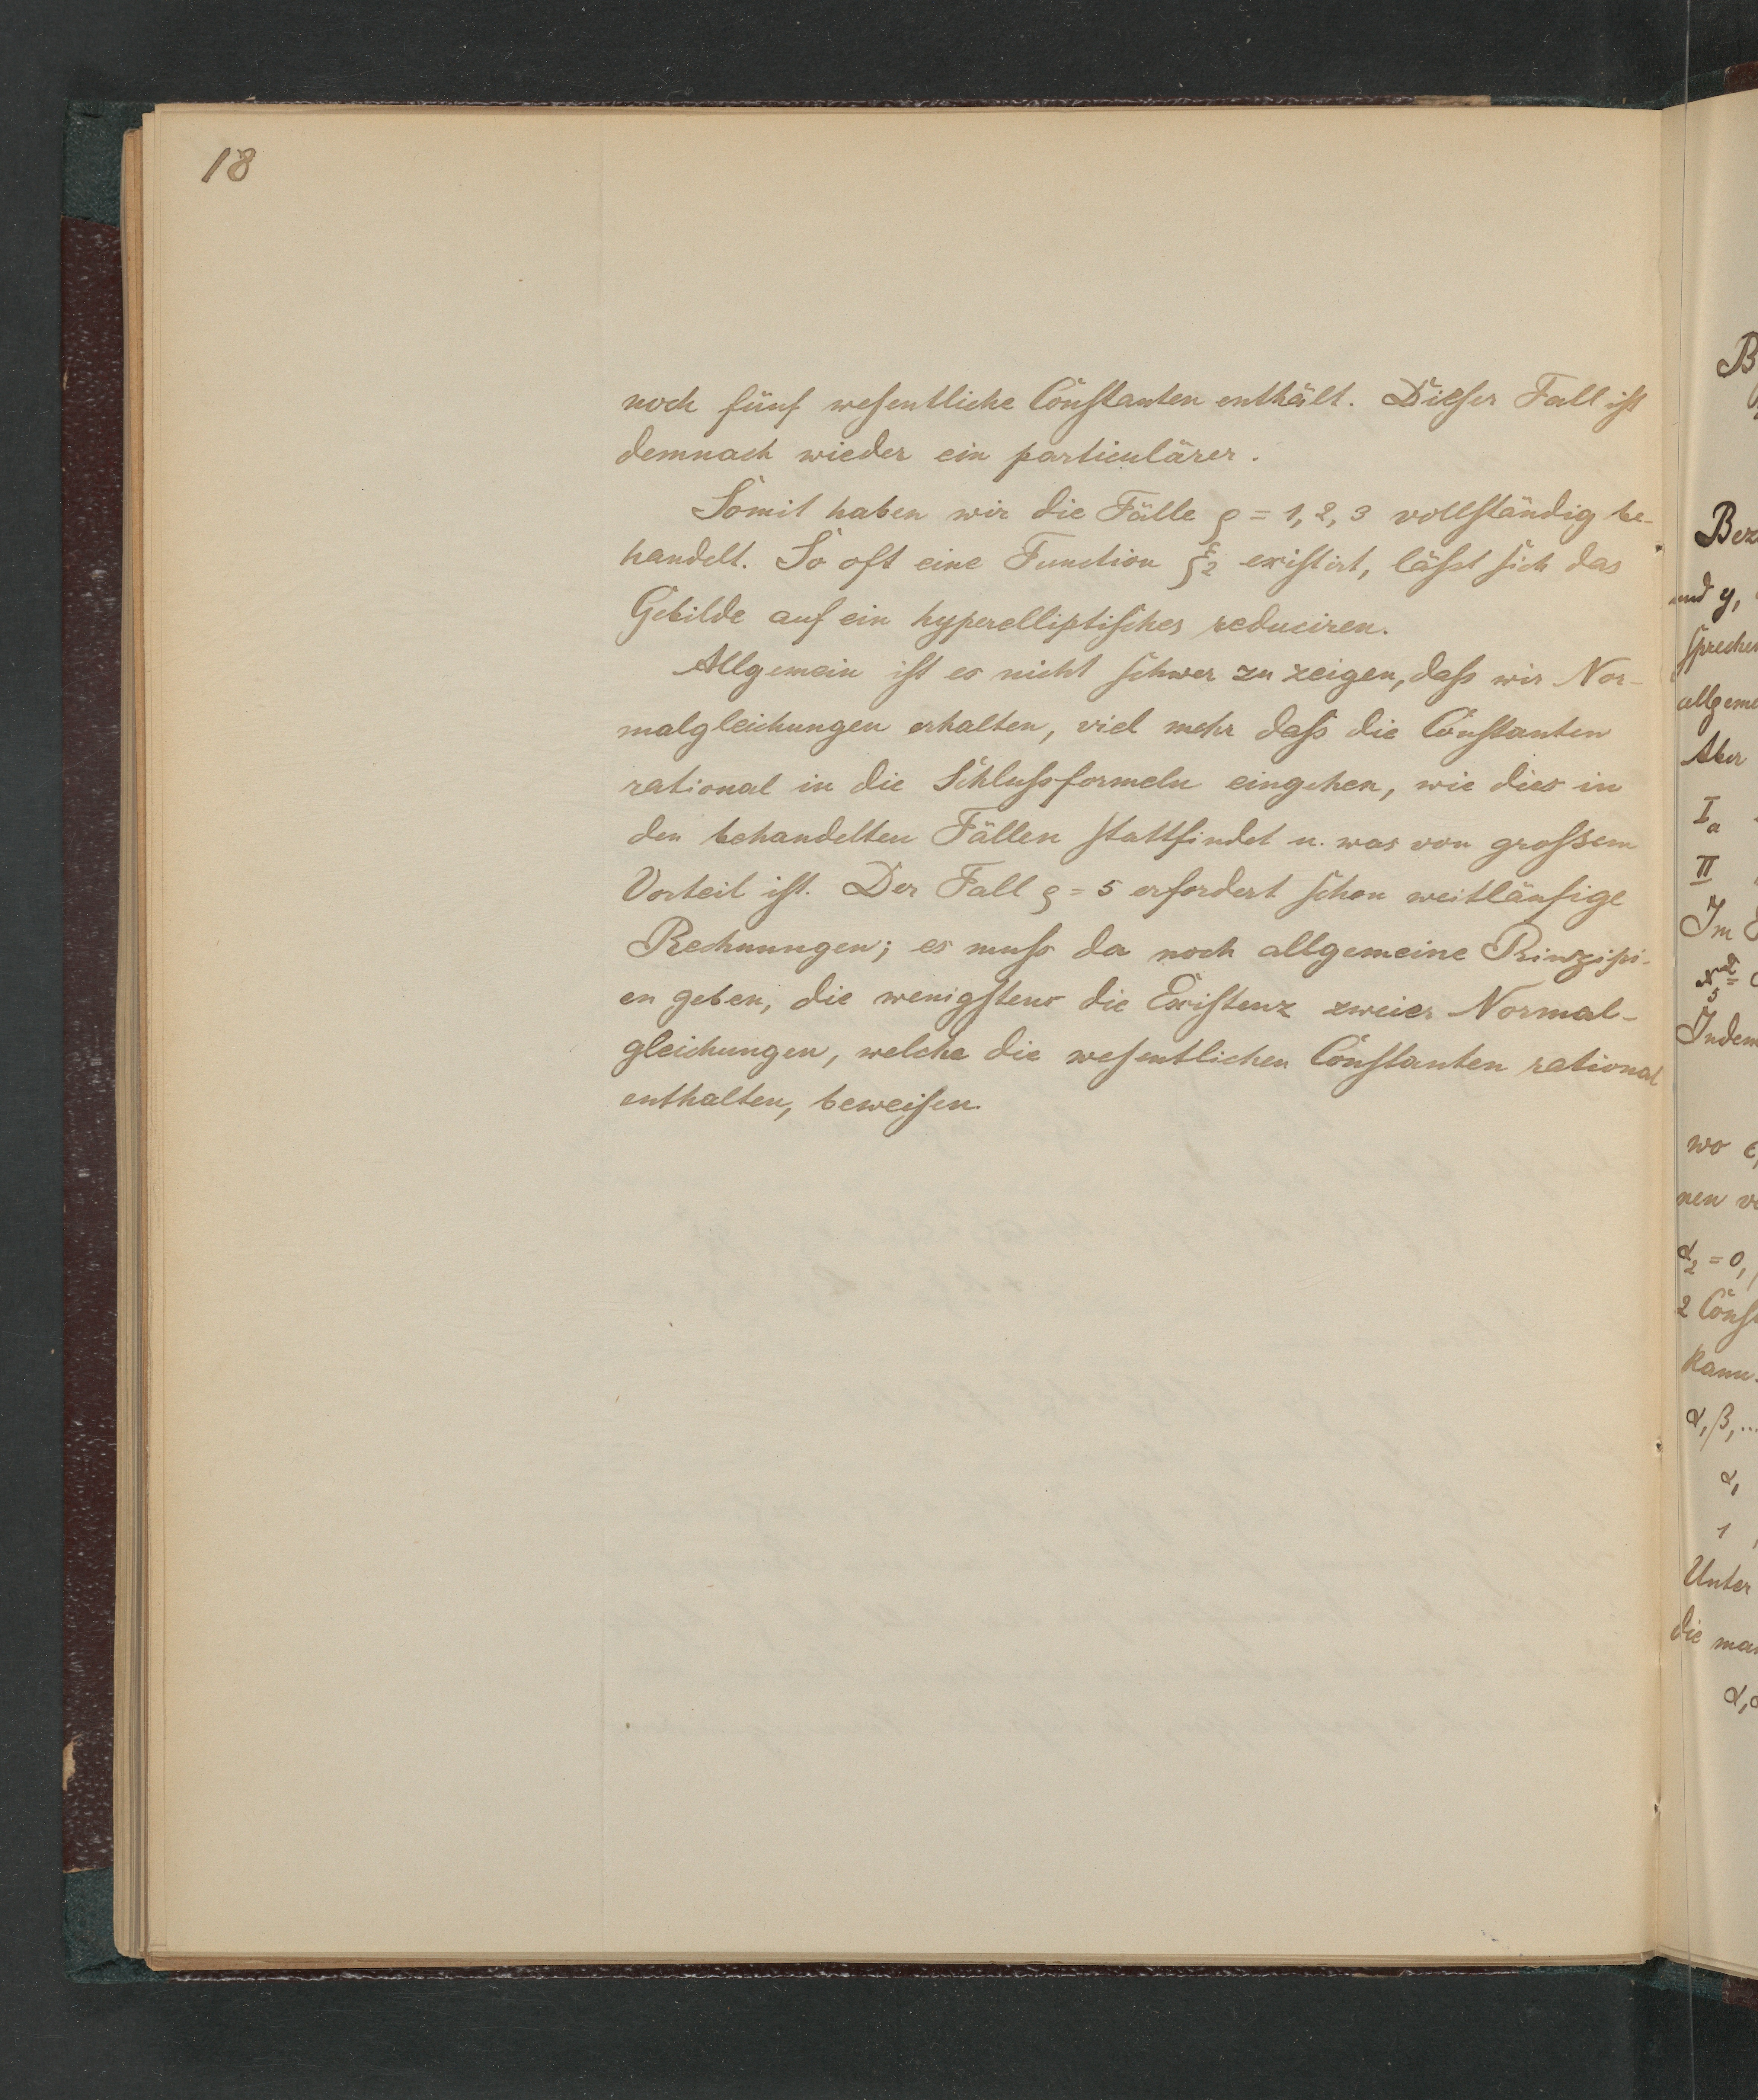 18
noch fünf wesentliche Constanten enthält. Dieser Fall ist
demnach wieder ein particulärer.
Somit haben wir die Fälle ϱ = 1, 2, 3 vollständig be-
handelt. So oft eine Function ξ₂ existirt, lässt sich das
Gebilde auf ein hyperelliptisches reduciren.
Allgemein ist es nicht schwer zu zeigen, dass wir Nor-
malgleichungen erhalten, viel mehr dass die Constanten
rational in die Schlussformeln eingehen, wie dies in
den behandelten Fällen stattfindet u. was von grossem
Vorteil ist. Der Fall ϱ = 5 erfordert schon weitläufige
Rechnungen; es muss da noch allgemeine Prinzipi-
en geben, die wenigstens die Existenz zweier Normal-
gleichungen, welche die wesentlichen Constanten rational
enthalten, beweisen.
B
Bez
und y,
sprechen
allgeme
Aber
Iₐ
II
Im
Indem
wo
nen
α₂ = 0,
2 Const
kann.
α, β, ...
α,
1
Unter
die man
α,